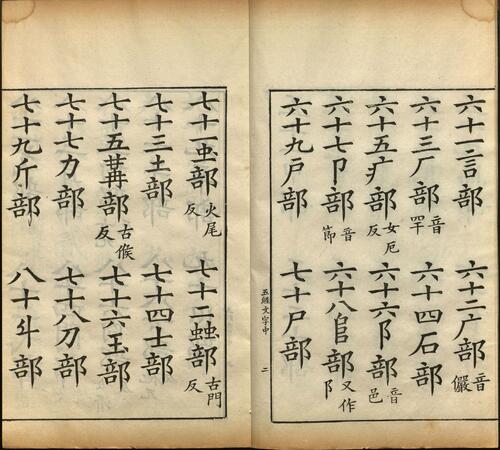 六十一言部 六十二广部音儼
六十三厂部音罕 六十四石部
六十五疒部女厄反 六十六阝部音邑
六十七卩部音節 六十八𨸏部又作阝
六十九戶部 七十尸部
五經文字中 二
七十一虫部火尾反 七十二䖵部古門反
七十三土部 七十四士部
七十五冓部古候反 七十六玉部
七十七力部 七十八刀部
七十九斤部 八十斗部